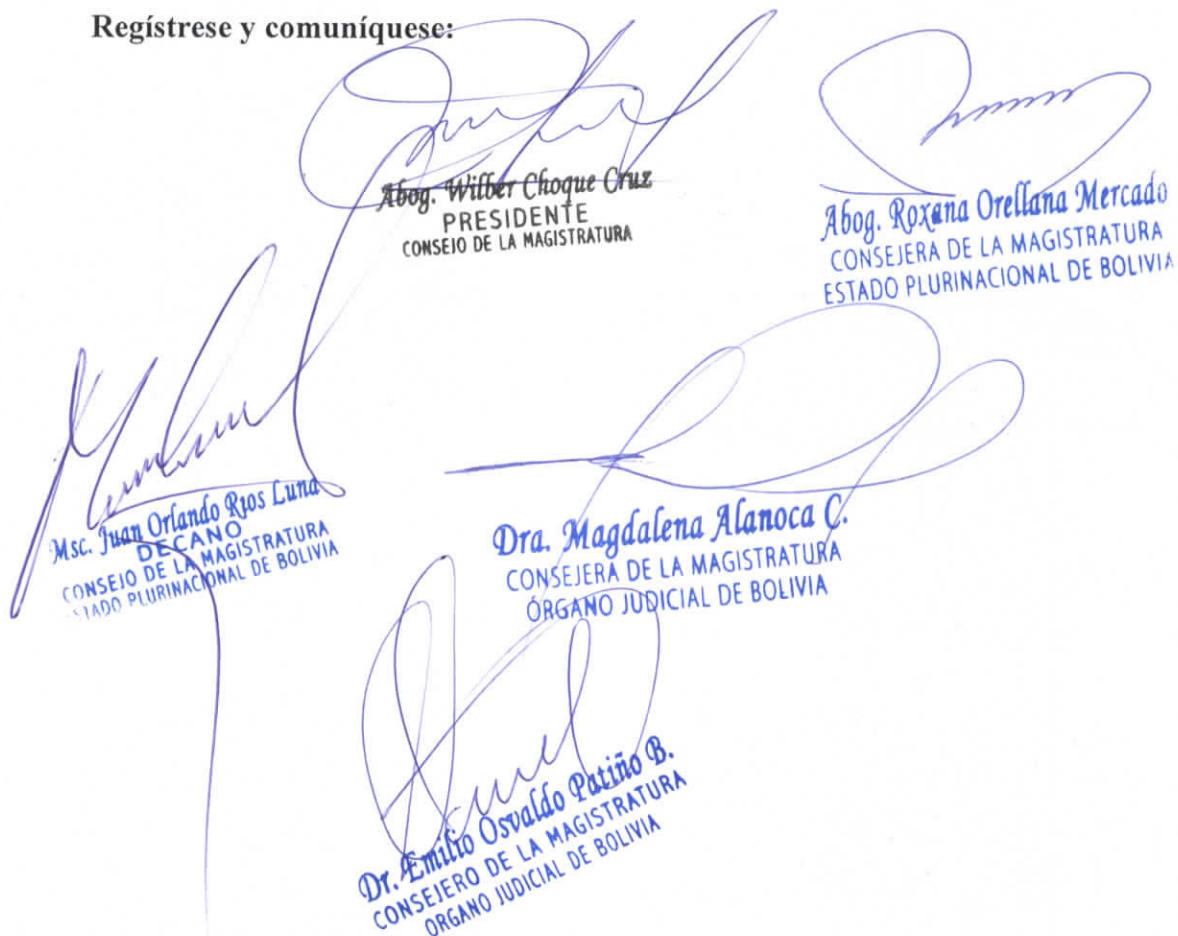 Regístrese y comuníquese:
Abog. Wilber Choque Cruz
PRESIDENTE
CONSEJO DE LA MAGISTRATURA
Abog. Roxana Orellana Mercado
CONSEJERA DE LA MAGISTRATURA
ESTADO PLURINACIONAL DE BOLIVIA
Msc. Juan Orlando Rios Luna
DECANO
CONSEJO DE LA MAGISTRATURA
ESTADO PLURINACIONAL DE BOLIVIA
Dra. Magdalena Alanoca C.
CONSEJERA DE LA MAGISTRATURA
ÓRGANO JUDICIAL DE BOLIVIA
Dr. Emilio Osvaldo Patiño B.
CONSEJERO DE LA MAGISTRATURA
ORGANO JUDICIAL DE BOLIVIA